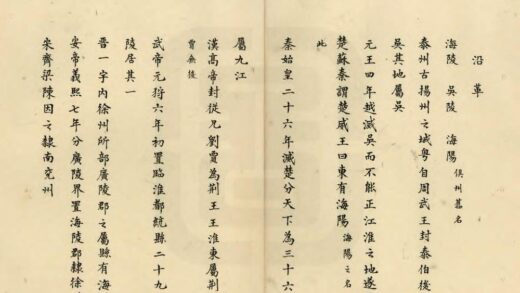 沿革
海陵 吳陵 海陽 俱州舊名
泰州古揚州之域粤自周武王封泰伯後
吳其地屬吳
元王四年越滅吳而不能正江淮之地遂
楚蘇秦謂楚威王曰東有海陽 海陽之名
此
秦始皇二十六年滅楚分天下為三十六
屬九江
漢高帝封從兄劉賈為荆王王淮東屬荆
賈無後
武帝元狩六年初置臨淮都統縣二十九
陵居其一
晉一字內徐州所部廣陵郡之屬縣有海
安帝義熙七年分廣陵界置海陵郡隸徐
宋齊梁陳因之隸南兗州